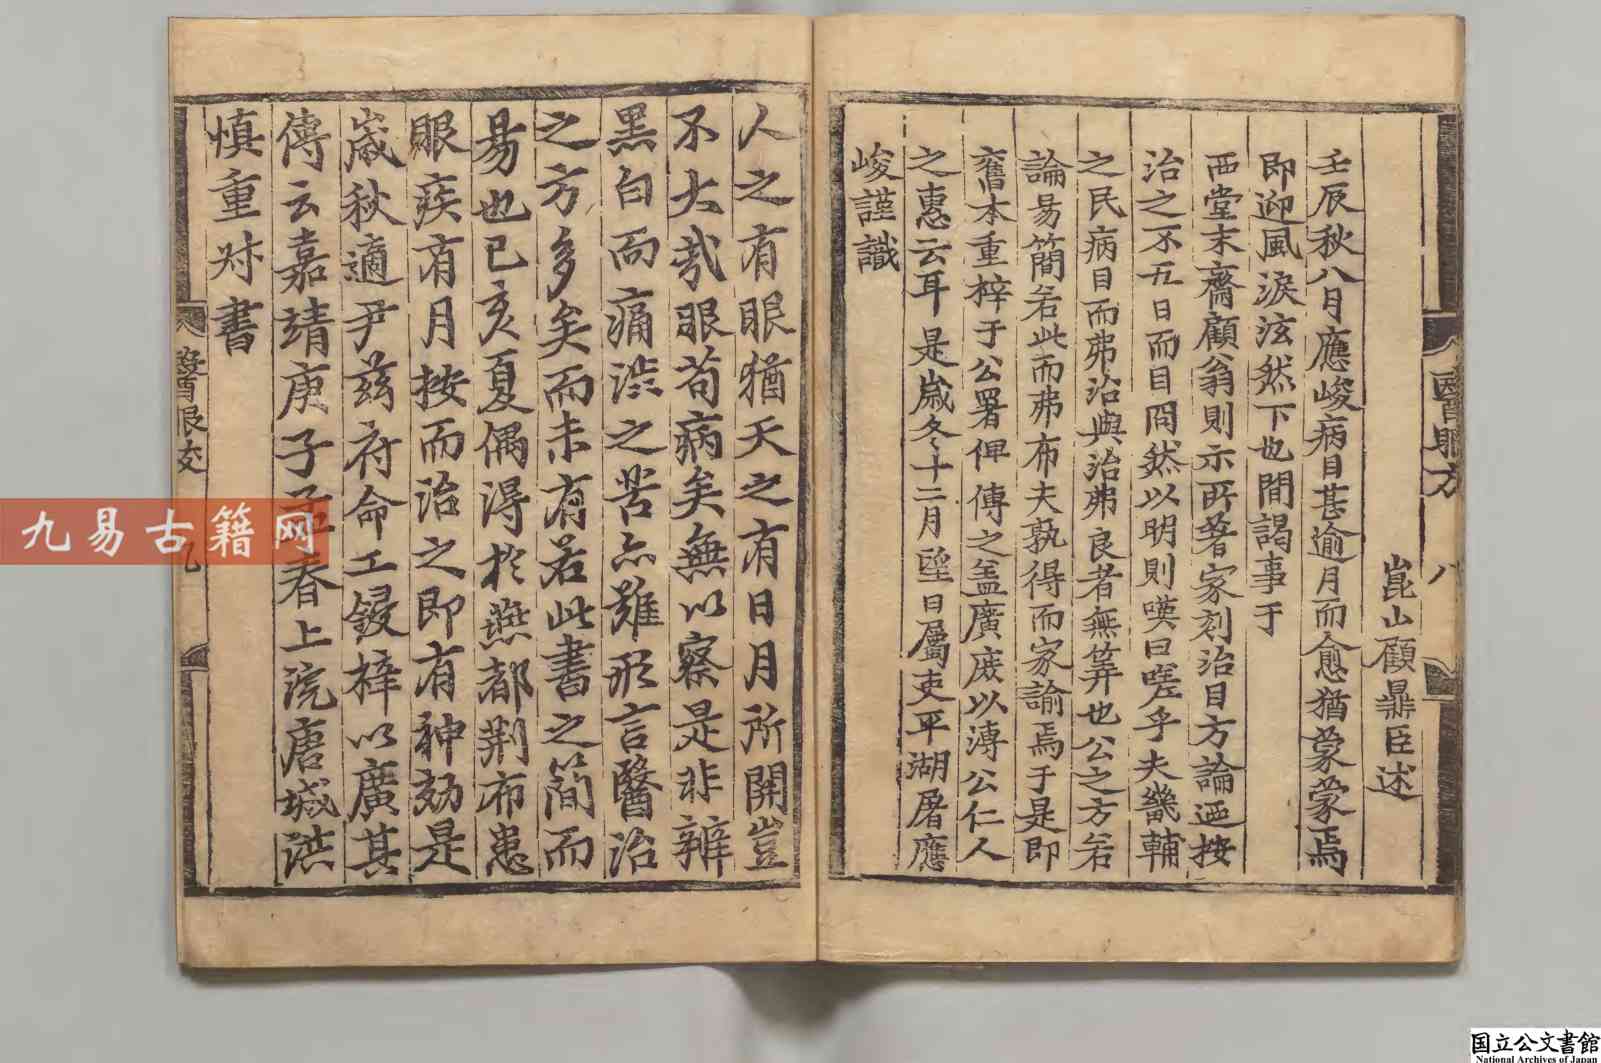 崑山顧鼎臣述
壬辰秋八月應峻病目甚逾月而愈猶蒙蒙焉
即迎風淚泫然下也間謁事于
西堂末齋顧翁則示所著家刻治目方論迺按
治之不五日而目冏然以明則嘆曰嗟乎夫畿輔
之民病目而弗治與治弗良者無筭也公之方若
論易簡若此而弗布夫孰得而家諭焉于是即
舊本重梓于公署俾傳之益廣庶以溥公仁人
之惠云耳是嵗冬十二月
日屬吏平湖屠應
峻謹識
醫眼方
八
人之有眼猶天之有日月所關豈
不大哉眼苟病矣無以察是非辨
黑白而痛澁之苦亦難形言醫治
之方多矣而未有若此書之簡而
易也已亥夏偶得於燕都荆布患
眼疾有月按而治之即有神効是
嵗秋適尹茲府命工鋟梓以廣其
傳云嘉靖庚子孟春上浣唐城洪
慎重對書
九易古籍网
国立公文書館
National Archives of Japan